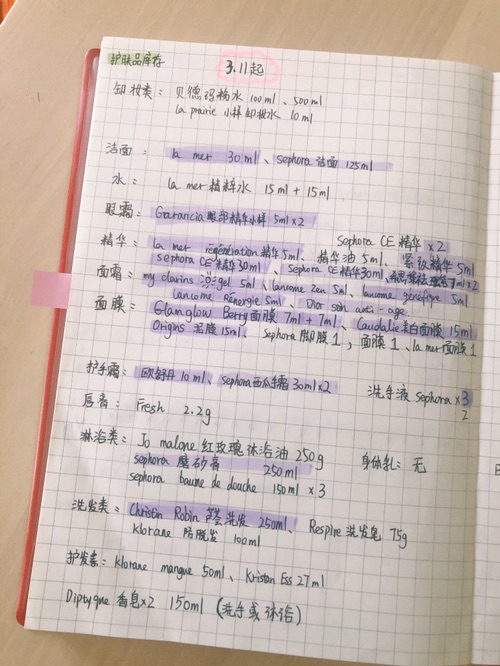 护肤品库存
3.11起
卸妆类：贝德玛粉水 100ml、500ml
la prairie 小样卸妆水 10ml
洁面：la mer 30ml、sephora 洁面 125ml
水：la mer 精粹水 15ml + 15ml
眼霜：Garancia 眼部精华小样 5ml×2
Sephora CE 精华 ×2
精华：la mer régénération 精华 5ml、精华油 5ml、紧致精华 5ml
sephora CE 精华 30ml、Sephora CE 精华 30ml、
面霜：my clarins gel 5ml、lancome zen 5ml、lancome génifique 5ml
lancome Rénergie 5ml、Dior soin anti-age
面膜：Glamglow Berry 面膜 7ml + 7ml、Caudalie 美白面膜 15ml
Origins 泥膜 15ml、sephora 脚膜 1，面膜 1、la mer 面膜 1
护手霜：欧舒丹 10ml、sephora 西瓜手霜 30ml×2
洗手液 sephora ×3
2
唇膏：Fresh 2.2g
淋浴类：Jo malone 红玫瑰沐浴油 250g
身体乳：无
sephora 磨砂膏 250ml
sephora baume de douche 150ml × 3
洗发类：Christin Robin 芦荟洗发 250ml、Respire 洗发皂 75g
klorane 防脱发 100ml
护发素：klorane mangue 50ml、Kristan Ess 27ml
Diptyqne 香皂×2 150ml（洗手或沐浴）